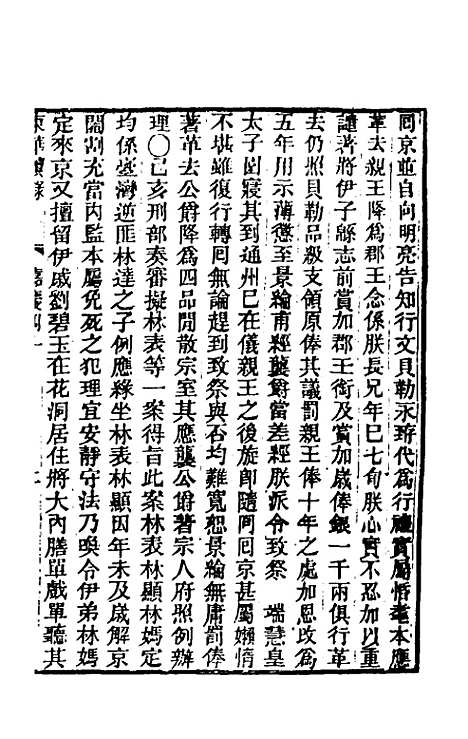 囘京並自向明亮告知行文貝勒永𤩹代爲行禮實屬悖耄本應
革去親王降爲郡王念係朕長兄年巳七旬朕心實不忍加以重
譴著將伊子緜志前賞加郡王銜及賞加歲俸銀一千兩俱行革
去仍照貝勒品級支領原俸其議罰親王俸十年之處加恩改爲
五年用示薄懲至景綸甫經襲爵當差經朕派令致祭 端慧皇
太子園寢其到通州巳在儀親王之後旋卽隨同囘京甚屬嬾惰
不堪雖復行轉囘無論趕到致祭與否均難寬恕景綸無庸罰俸
著革去公爵降爲四品閒散宗室其應襲公爵著宗人府照例辦
理〇己亥刑部奏審擬林表等一案得旨此案林表林顯林媽定
均係臺灣逆匪林達之子例應緣坐林表林顯因年未及歲解京
閹割充當内監本屬免死之犯理宜安靜守法乃喚令伊弟林媽
定來京又擅留伊戚劉碧玉在花洞居住將大内膳單戲單聽其
東華續錄 嘉慶四一